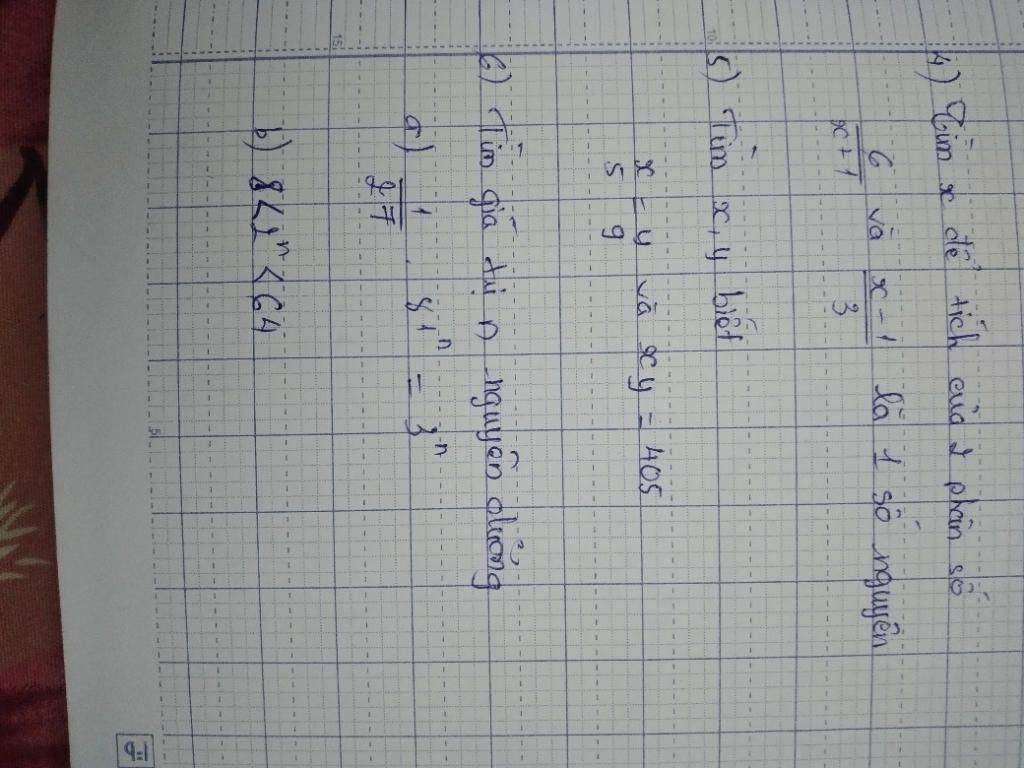 4) Tìm x để tích của 2 phân số
6/x+1 và x-1/3 là 1 số nguyên
5) Tìm x,y biết
x/5 = y/9 và xy = 405
6) Tìm giá trị n nguyên dương
a) 1/27 . 81ⁿ = 3ⁿ
b) 8 < 2ⁿ < 64
10
15
5